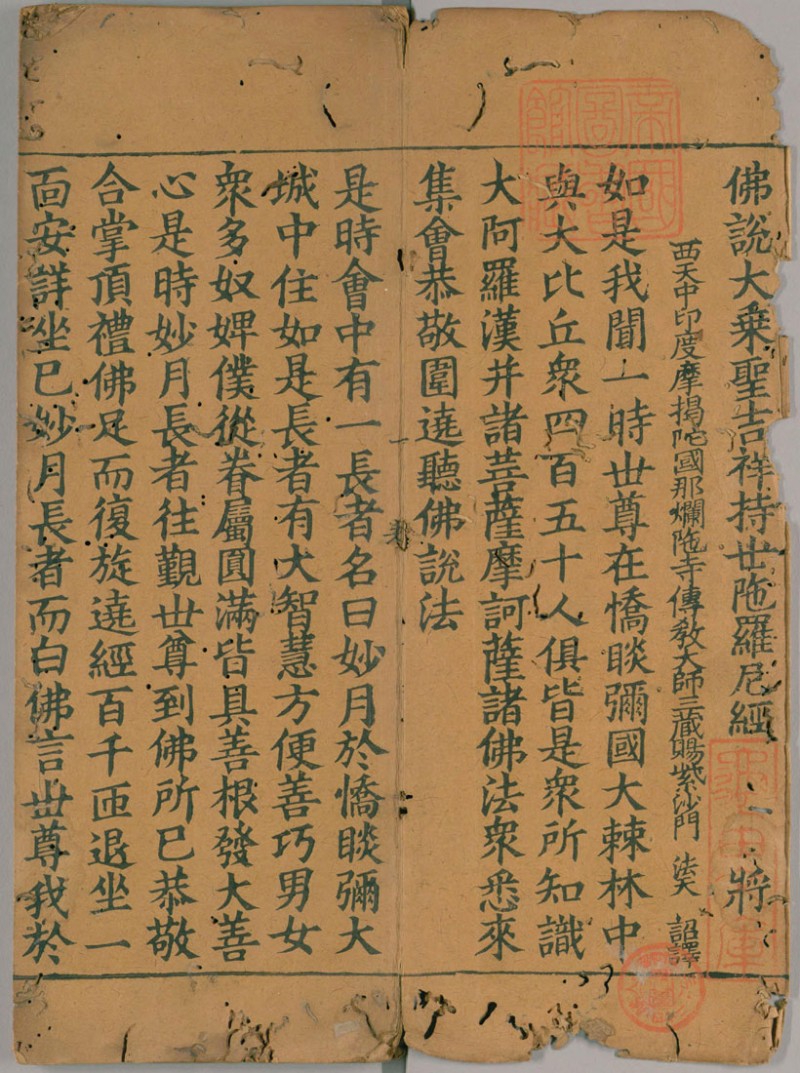 佛說大乗聖吉祥持世陁羅尼經 將
西天中印度摩揭陀國那爛陁寺傳教大師三藏賜紫沙門 法天 詔譯
如是我聞一時世尊在憍睒彌國大棘林中
與大比丘衆四百五十人俱皆是衆所知識
大阿羅漢并諸菩薩摩訶薩諸佛法衆悉來
集會恭敬圍遶聽佛說法
是時會中有一長者名曰妙月於憍睒彌大
城中住如是長者有大智慧方便善巧男女
衆多奴婢僕從眷屬圓滿皆具善根發大善
心是時妙月長者往觀世尊到佛所已恭敬
合掌頂禮佛足而復旋遶經百千匝退坐一
面安詳坐已妙月長者而白佛言世尊我於